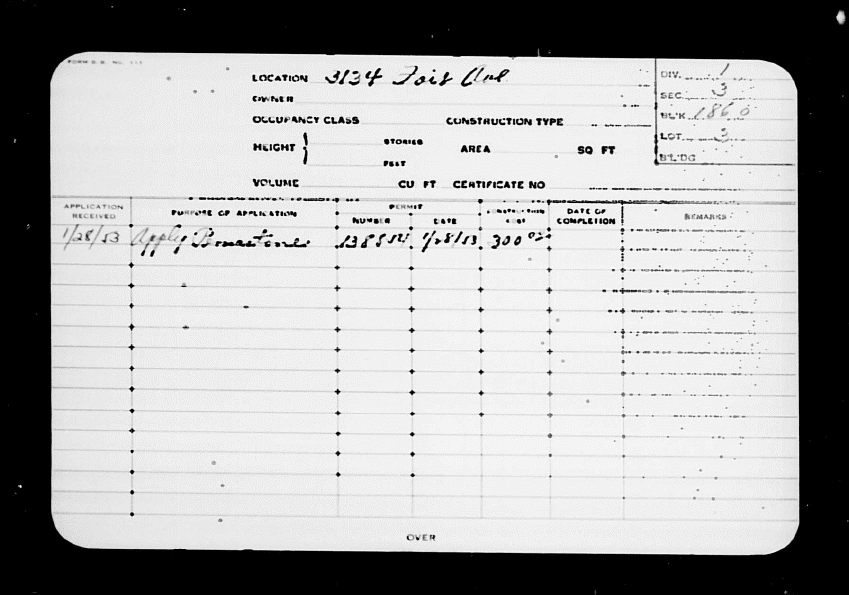 FORM B.B. NO. 111
LOCATION 3134 Fair Ave
OWNER
OCCUPANCY CLASS CONSTRUCTION TYPE
HEIGHT } STORIES FEET AREA SQ FT
VOLUME CU FT CERTIFICATE NO
DIV. 1
SEC. 3
BL'K 1860
LOT 3
B'L'DG
APPLICATION RECEIVED PURPOSE OF APPLICATION PERMIT NUMBER DATE CONSTRUCTION COST DATE OF COMPLETION REMARKS
1/28/53 Apply 1/28/53 300 00
OVER